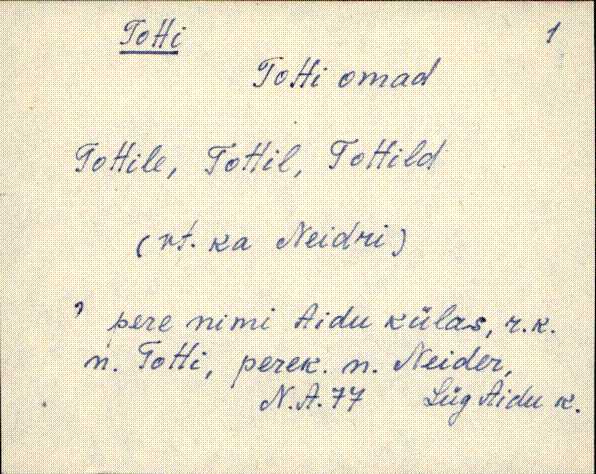 Totti 1
Totti omad
Tottile, Tottil, Tottild
(vt. ka Neidri)
' pere nimi Aidu külas, r.k.
n. Totti, perek. n. Neider,
N.A. 77 Lüg Aidu k.